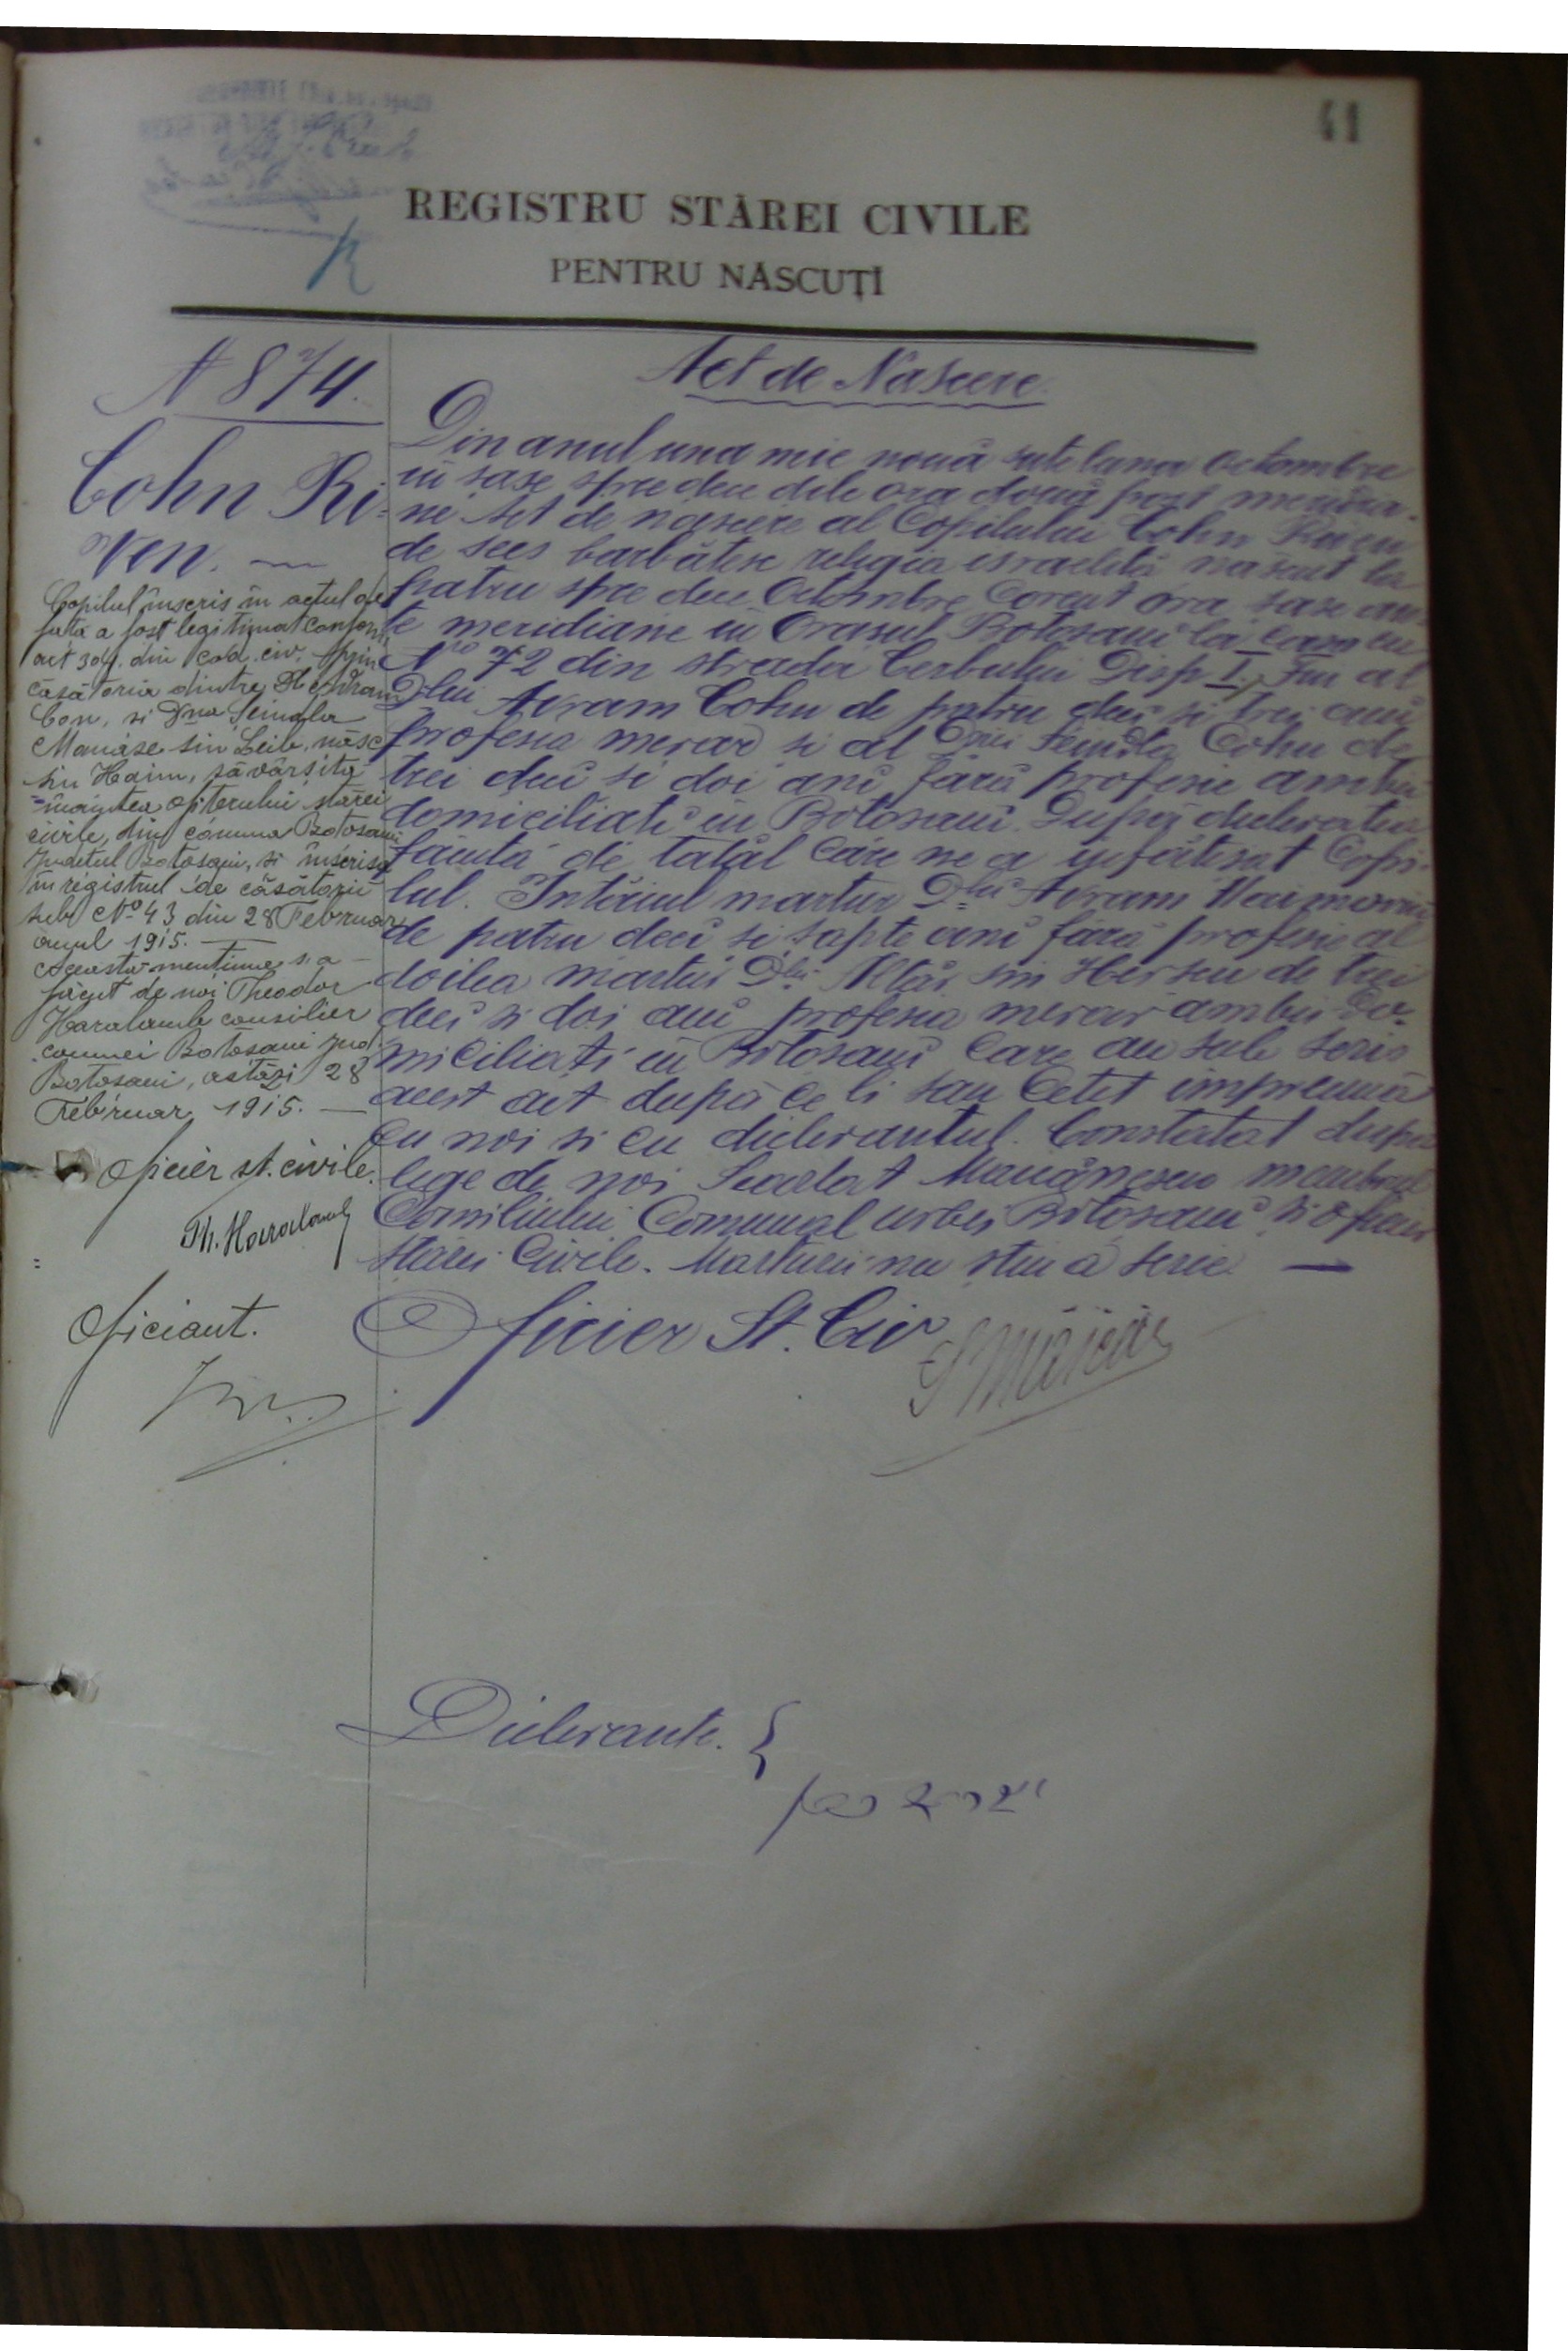 41
REGISTRU STĂREI CIVILE
PENTRU NĂSCUȚI
N 874.
Cohn Ri=
ven.
Copilul înscris în actul de
față a fost legitimat conform
art 304. din cod. civ. prin
căsătoria dintre Dl Avram
Con, si Dna Seindla
Manase sin Leib, născ
sin Haim, săvârșita
înaintea ofiterului stărei
civile, din comuna Botosani
Judetul Botosani, si înscrisa
în registrul de căsătorii
sub No 43 din 28 Februar
anul 1915.
Aceasta mentiune s'a
făcut de noi Theodor
Haralamb consilier
comunei Botosani jud.
Botosani, astăzi 28
Februar 1915.
Oficier st. civile.
Th. Haralamb
Oficiant.
Act de Nascere
Din anul una mie nouă sute luna Octombre
in sase spre dece dile ora două post meridia-
ne Act de nascere al Copilului Cohn Riven
de secs barbătesc religia israelită născut la
patru spre dece Octombre Corent ora sase an-
te meridiane in Orasul Botosani la casa cu
No 72 din strada Cerbului Disp I. Fiu al
Dlui Avram Cohn de patru deci si trei ani
profesia merar si al Dnei Seindla Cohn de
trei deci si doi ani fără profesie ambii
domiciliati in Botosani. După declaratia
făcută de tatăl Care ne a infătisat Copi-
lul. Intăiul martur Dlu Avram
de patru deci si sapte ani fără profesie al
doilea martur Dlu Altăr sin Herscu de trei
deci si doi ani profesia merar ambii do-
miciliati in Botosani Care au sub scris
acest act după ce li sau Cetit impreună
cu noi si cu diclerantul. Constatat dupe
lege de noi Scarlat membrul
Consiliului Comunal urbei Botosani si oficier
stărei Civile. Marturii nu stiu a scrie.
Oficier St. Civ
Diclerante. {